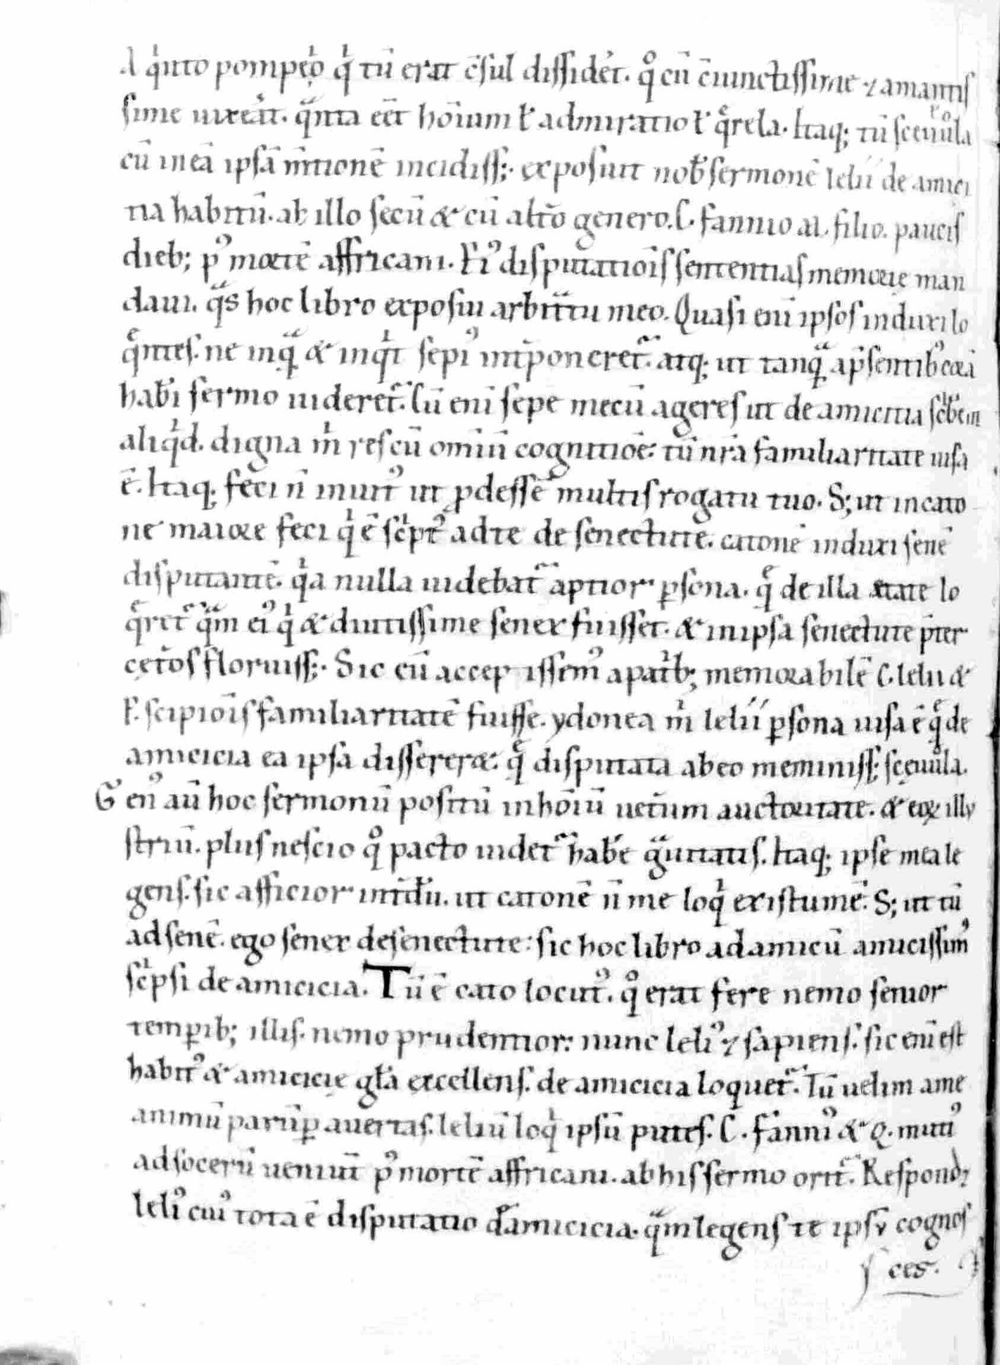 A q̍nto pompeo̍ q̍ tū erat c̄sul dissidēt. qͦ cū c̄iunctissime ⁊ amantis
sime uixeāt. qᷓnta eēt hoīum ł admiratio ł qͤrela. Itaq; tū sceuola
cū in eā ipsā m̄tionē incidiss;. exposuit nob̄ sermonē lelii de amici
tia habitū. ab illo secū & cū altō genero. C. fannio M. filio. paucis
dieb; pꝰ mortē affricani. Eiꝰ disputatiōis sententias memorię man
daui. qᷓs hoc libro exposui arbitᷓtu meo. Quasi eni ipsos induxi lo
qͤntes. ne inqᷓ & inq̍t sepiꝰ int̄poneret᷑. atq; ut tanqᷓ ap̄sentibꝰ corā
habēi sermo uideret᷑. Cū eni sepe mecū ageres ut de amicitia sc̍beꝶ
aliq̍d. digna m̍ res cū omīū cognitiōe. tū nr̄a familiaritate uisa
ē. Itaq; feci n̄ inuitꝰ ut ꝓdessē multis rogatu tuo. S; ut in cato
ne maiore feci q̍ ē sc̍ptꝰ ad te de senectute. catonē induxi senē
disputantē. q̍a nulla uidebat᷑ aptior ꝑsona. qͤ de illa ętate lo
qͤret᷑ qᷓm eiꝰ q̍ & diutissime senex fuisset. & in ipsa senectute p̄ter
cet̄os floruiss;. Sic cū accepissemꝰ a patib; memorabilē C. lelii &
P. scipiōis familiaritatē fuisse. ydonea m̍ lelii ꝑsona uisa ē qͤ de
amicicia ea ipsa disserer&. qͤ disputata ab eo meminiss; sceuola.
Gͥ enꝰ aū hoc sermonū positū in hoīū uet̄um auctoritate. & eoꝝ illu
striū. plus nescio qͦ pacto uidet᷑ habē gᷓuitatis. Itaq; ipse mea le
gens. sic afficior int̄dū. ut catonē n̄ me loq̍ existumē. S; ut tū
ad senē. ego senex de senectute: sic hoc libro ad amicū amicissimꝰ
sc̍psi de amicicia. Tū ē cato locutꝰ. qͦ erat fere nemo senior
temꝑib; illis. nemo prudentior: nunc leliꝰ ⁊ sapiens. sic eni est
habitꝰ & amicicię gl̄a excellens. de amicicia loquet᷑. Tū uelim a me
animū parūꝑ auertas. leliū loq̍ ipsū putes. C. fanniꝰ & Q. mutiꝰ
ad socerū ueniūt pꝰ mortē affricani. ab his sermo orit᷑. Respond;
leliꝰ cuiꝰ tota ē disputatio d̄ amicicia. qᷓm legens te ipsū cognos
ces.